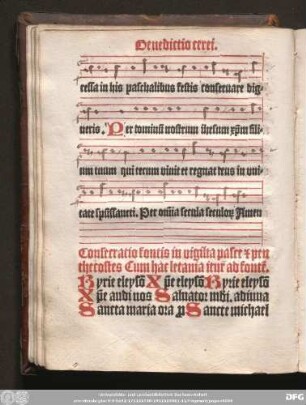 Benedictio cerei.
cessa in his paschalibus festis conseruare dig-
neris. Per dominū nostrum ihesum xp̄m fili-
um tuum qui tecum viuit et regnat deus in vni-
tate sp̄ssancti. Per om̄ia secula seculoꝝ Amen
Consecratio fontis in vigilia pasce ⁊ pen
thecostes Cum hac letania itur ad fontē.
Kyrie eleysō Xp̄e eleysō Kyrie eleysō
Xp̄e audi nos Saluator mūdi, adiuua
Sancta maria ora p̄ Sancte michael